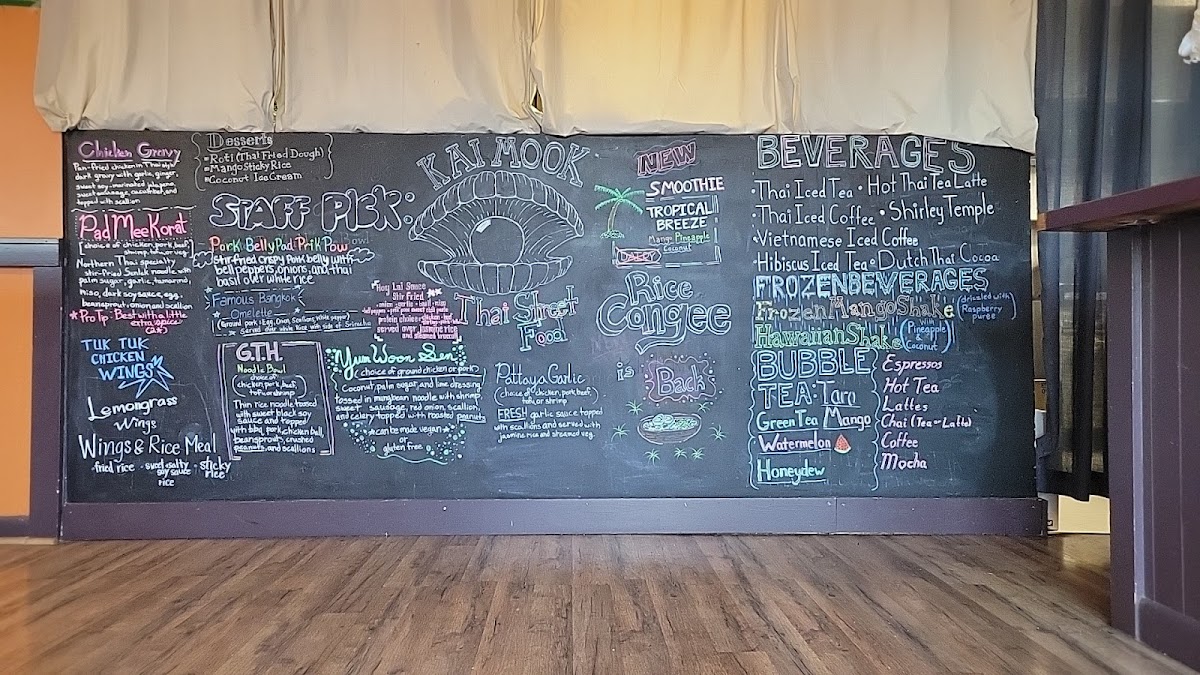 Chicken Gravy
Pan-fried chicken in Thai style
dark gravy with garlic, ginger,
sweet soy-marinated jalapeno
topped with scallion
Pad Mee Korat
(choice of chicken, pork, beef,
shrimp, tofu or veg)
Northern Thai specialty
stir-fried Sunluk noodle with
palm sugar, garlic, tamarind,
miso, dark soy sauce, egg,
beansprouts, onion and scallion
*Pro Tip: Best with a little
extra spice
TUK TUK
CHICKEN
WINGS
Lemongrass
Wings
Wings & Rice Meal
·fried rice ·sweet salty soy sauce rice ·sticky rice
Desserts
Roti (Thai Fried Dough)
Mango Sticky Rice
Coconut Ice Cream
STAFF PICK:
Pork Belly Pad Prik Pow
stir-fried crispy pork belly with
bell peppers, onions, and thai
basil over white rice
Famous Bangkok
Omelette
(Ground pork, Egg, Onion, Scallions, White pepper)
served over white rice with side of Sriracha
Hoy Lai Sauce
Stir Fried
served over Jasmine rice
and steamed broccoli
G.T.H.
Noodle Bowl
choice of
chicken, pork, beef,
tofu or shrimp
Thin rice noodle tossed
with sweet black soy
sauce and topped
with bbq pork, chicken, bell
beansprouts, crushed
peanuts, and scallions
Yum Woon Sen
choice of ground chicken or pork
Coconut, palm sugar, and lime dressing
tossed in mungbean noodle with shrimp,
sweet sausage, red onion, scallion,
and celery topped with roasted peanuts
*can be made vegan*
or
gluten free
KAI MOOK
Thai Street
Food
Pattaya Garlic
(choice of chicken, pork, beef,
tofu, or shrimp
FRESH garlic sauce topped
with scallions and served with
jasmine rice and steamed veg.
NEW
SMOOTHIE
TROPICAL
BREEZE
Mango Pineapple
Coconut
DAIRY
Rice
Congee
is Back
BEVERAGES
·Thai Iced Tea ·Hot Thai Tea Latte
·Thai Iced Coffee ·Shirley Temple
·Vietnamese Iced Coffee
·Hibiscus Iced Tea ·Dutch Thai Cocoa
FROZEN BEVERAGES
Frozen Mango Shake (drizzled with Raspberry puree)
Hawaiian Shake (with Pineapple & Coconut)
BUBBLE
TEA: Taro
Green Tea Mango
Watermelon
Honeydew
Espressos
Hot Tea
Lattes
Chai (Tea or Latte)
Coffee
Mocha